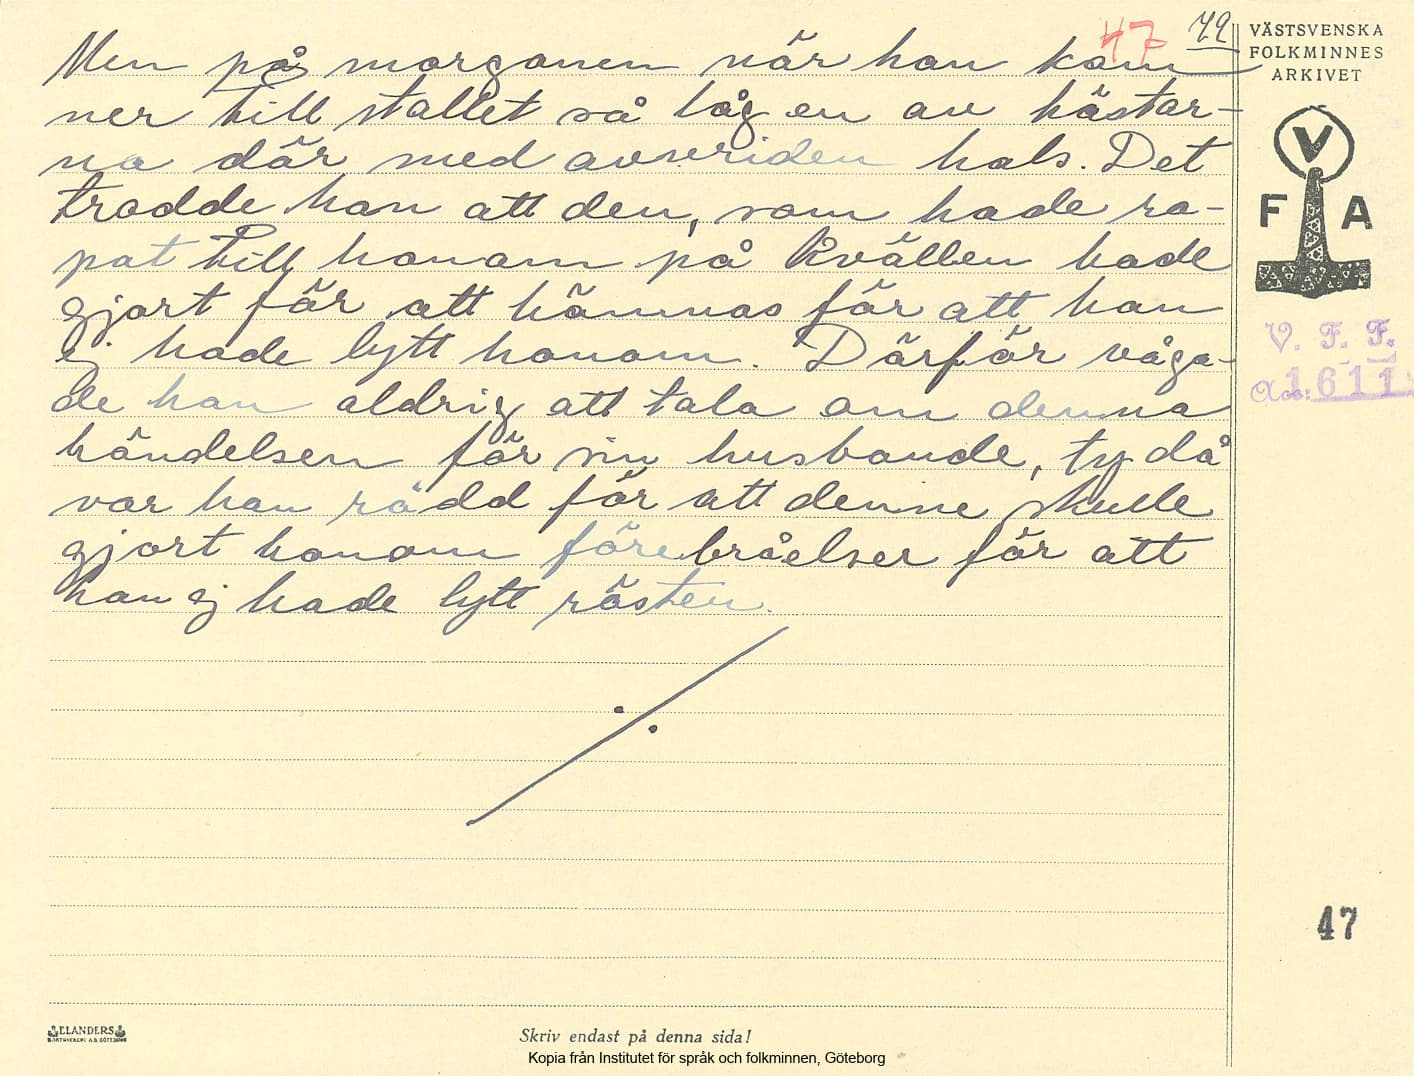 47 49
VÄSTSVENSKA
FOLKMINNES
ARKIVET
Men på morgonen när han kom
ner till stallet så låg en av hästar-
na där med avvriden hals. Det
trodde han att den, som hade ro-
pat till honom på kvällen hade
gjort för att hämnas för att han
ej hade lytt honom. Därför våga-
de han aldrig att tala om denna
händelsen för sin husbonde, ty då
var han rädd för att denne skulle
gjort honom förebråelser för att
han ej hade lytt rösten.
V
F A
V. F. F.
Acc: 1611
47
ELANDERS
BOKTRYCKERI A.B. GÖTEBORG
Skriv endast på denna sida!
Kopia från Institutet för språk och folkminnen, Göteborg